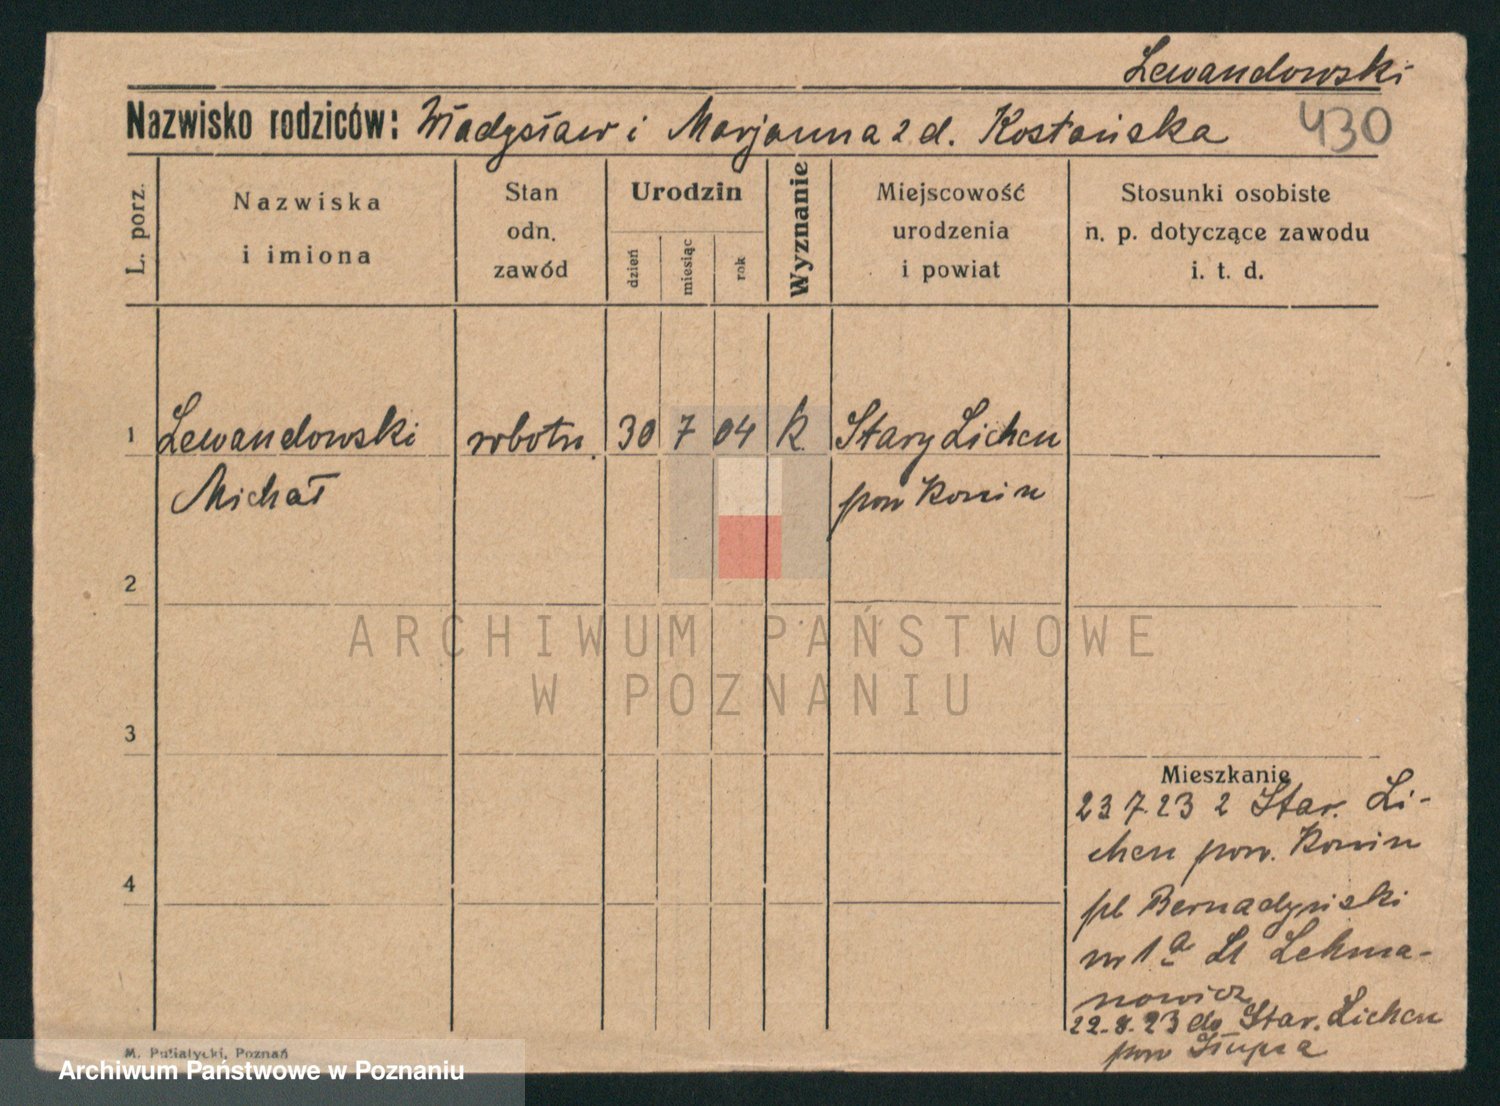 Lewandowski
Nazwisko rodziców: Władysław i Marjanna z d. Kostańska
430
L. porz.
Nazwiska
i imiona
Stan
odn.
zawód
Urodzin
dzień
miesiąc
rok
Wyznanie
Miejscowość
urodzenia
i powiat
Stosunki osobiste
n. p. dotyczące zawodu
i. t. d.
1 Lewandowski robotn. 30 7 04 k. Stary Lichen
Michał pow Konin
2
3
4
ARCHIWUM PAŃSTWOWE
W POZNANIU
Mieszkanie
23 7 23 z Star. Li-
chen pow. Konin
pl Bernadyński
nr 1a Lehma-
nowicz
22.8.23 do Star. Lichen
pow
M. Putiatycki, Poznań
Archiwum Państwowe w Poznaniu